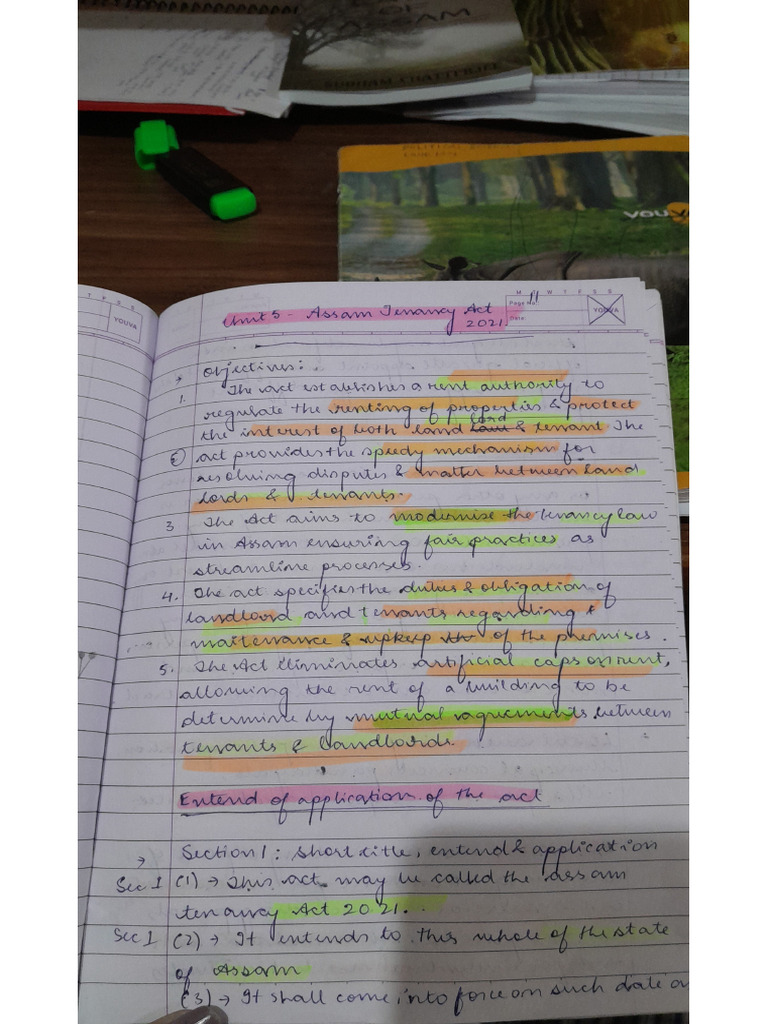 OF
ASSAM
SUBHAM CHATTERJEE
YOUVA
T F S S
YOUVA
M W T F S S
Page No.: 11
Date:
YOUVA
Unit 5 - Assam Tenancy Act
2021.
→ Objectives:
1. The act establishes a rent authority to
regulate the renting of properties & protect
the interest of both land lord & tenant The
② act provides the speedy mechanism for
resolving disputes & matter between land
lords & tenants.
3 The Act aims to modernise the tenancy law
in Assam ensuring fair practices as
streamline processes.
4. The act specifies the duties & obligation of
landlord and tenants regarding
maitenance & upkeep of the premises.
5. The Act Eliminates artificial caps on rent,
allowing the rent of a building to be
determine by mutual agreements between
tenants & landlords.
Entend of application of the act
→ Section 1: Short title, entend & application
Sec 1 (1) → This act may be called the assam
tenancy Act 2021.
Sec 1 (2) → It entends to this whole of the state
of Assam
(3) → It shall come into force on such date on